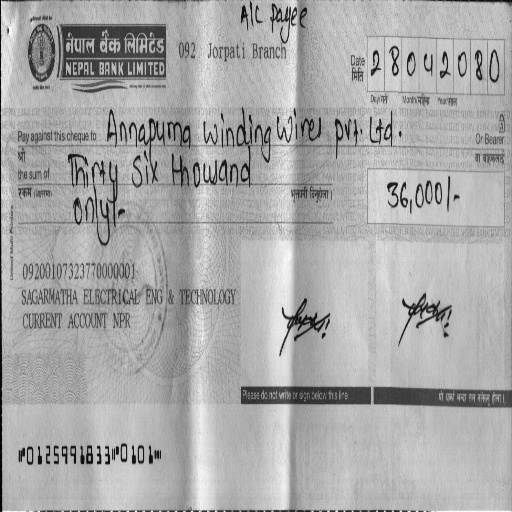 A/C Payee
नेपाल बैंक लिमिटेड
NEPAL BANK LIMITED
092 Jorpati Branch
Date
मिति
28042080
Day/गते Month/महिना Year/साल
Pay against this cheque to Annapurna Winding Wires pvt. Ltd.
Or Bearer
श्री
वा वाहकलाई
the sum of Thirty Six thousand
रकम (अक्षरमा)
only/-
भुक्तानी दिनुहोला।
36,000/-
09200107323770000001
SAGARMATHA ELECTRICAL ENG & TECHNOLOGY
CURRENT ACCOUNT NPR
Please do not write or sign below this line
⑈0125991833⑈0101⑈